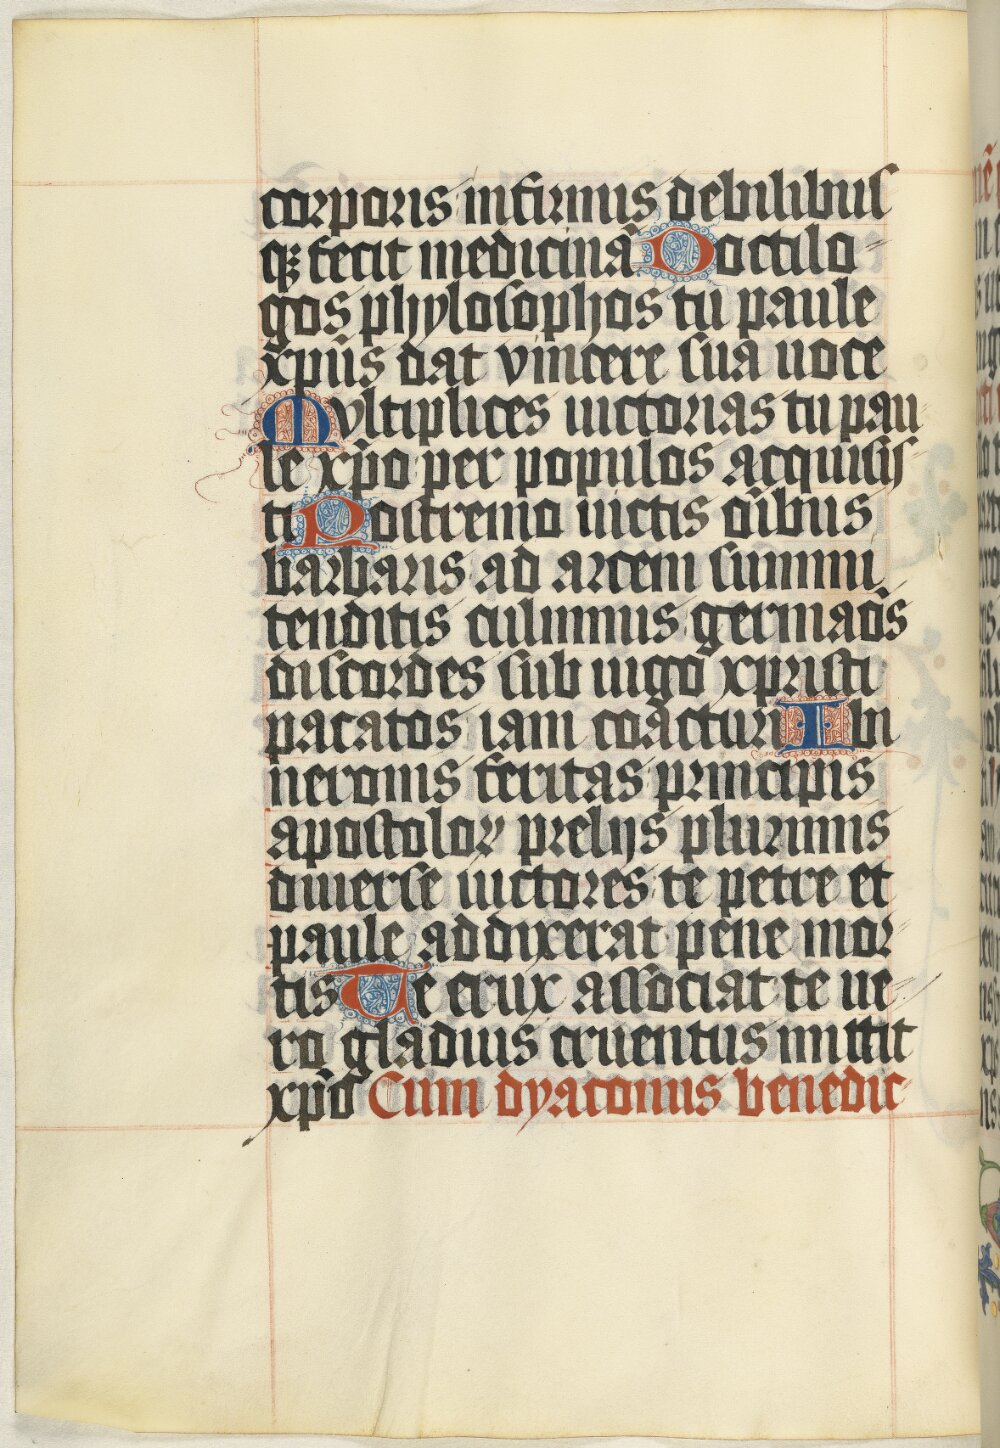 corporis infirmis debilibus
qȝ fecit medicinā Doctilo
gos phylosophos tu paule
xpūs dat vincere sua uoce
Multiplices uictorias tu pau
le xp̄o per populos acquisis
ti Postremo uictis oībus
barbaris ad arcem summi
tenditis culminis germaōs
discordes sub iugo xpristi
pacatos iam coācturi Ibi
neronis feritas principis
apostoloꝝ prelijs plurimis
diuerse uictores te petre et
paule addixerat pene mor
tis Te crux associat te ue
ro gladius cruentus mittit
xp̄o Cum dyaconus benedic